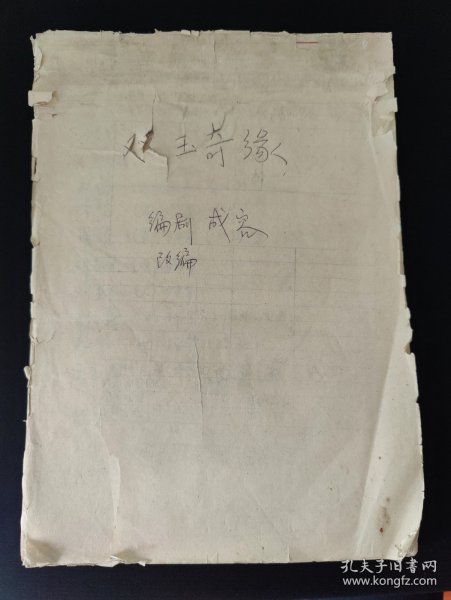 双玉奇缘
编剧 成容
改编
孔夫子旧书网
www.kongfz.com